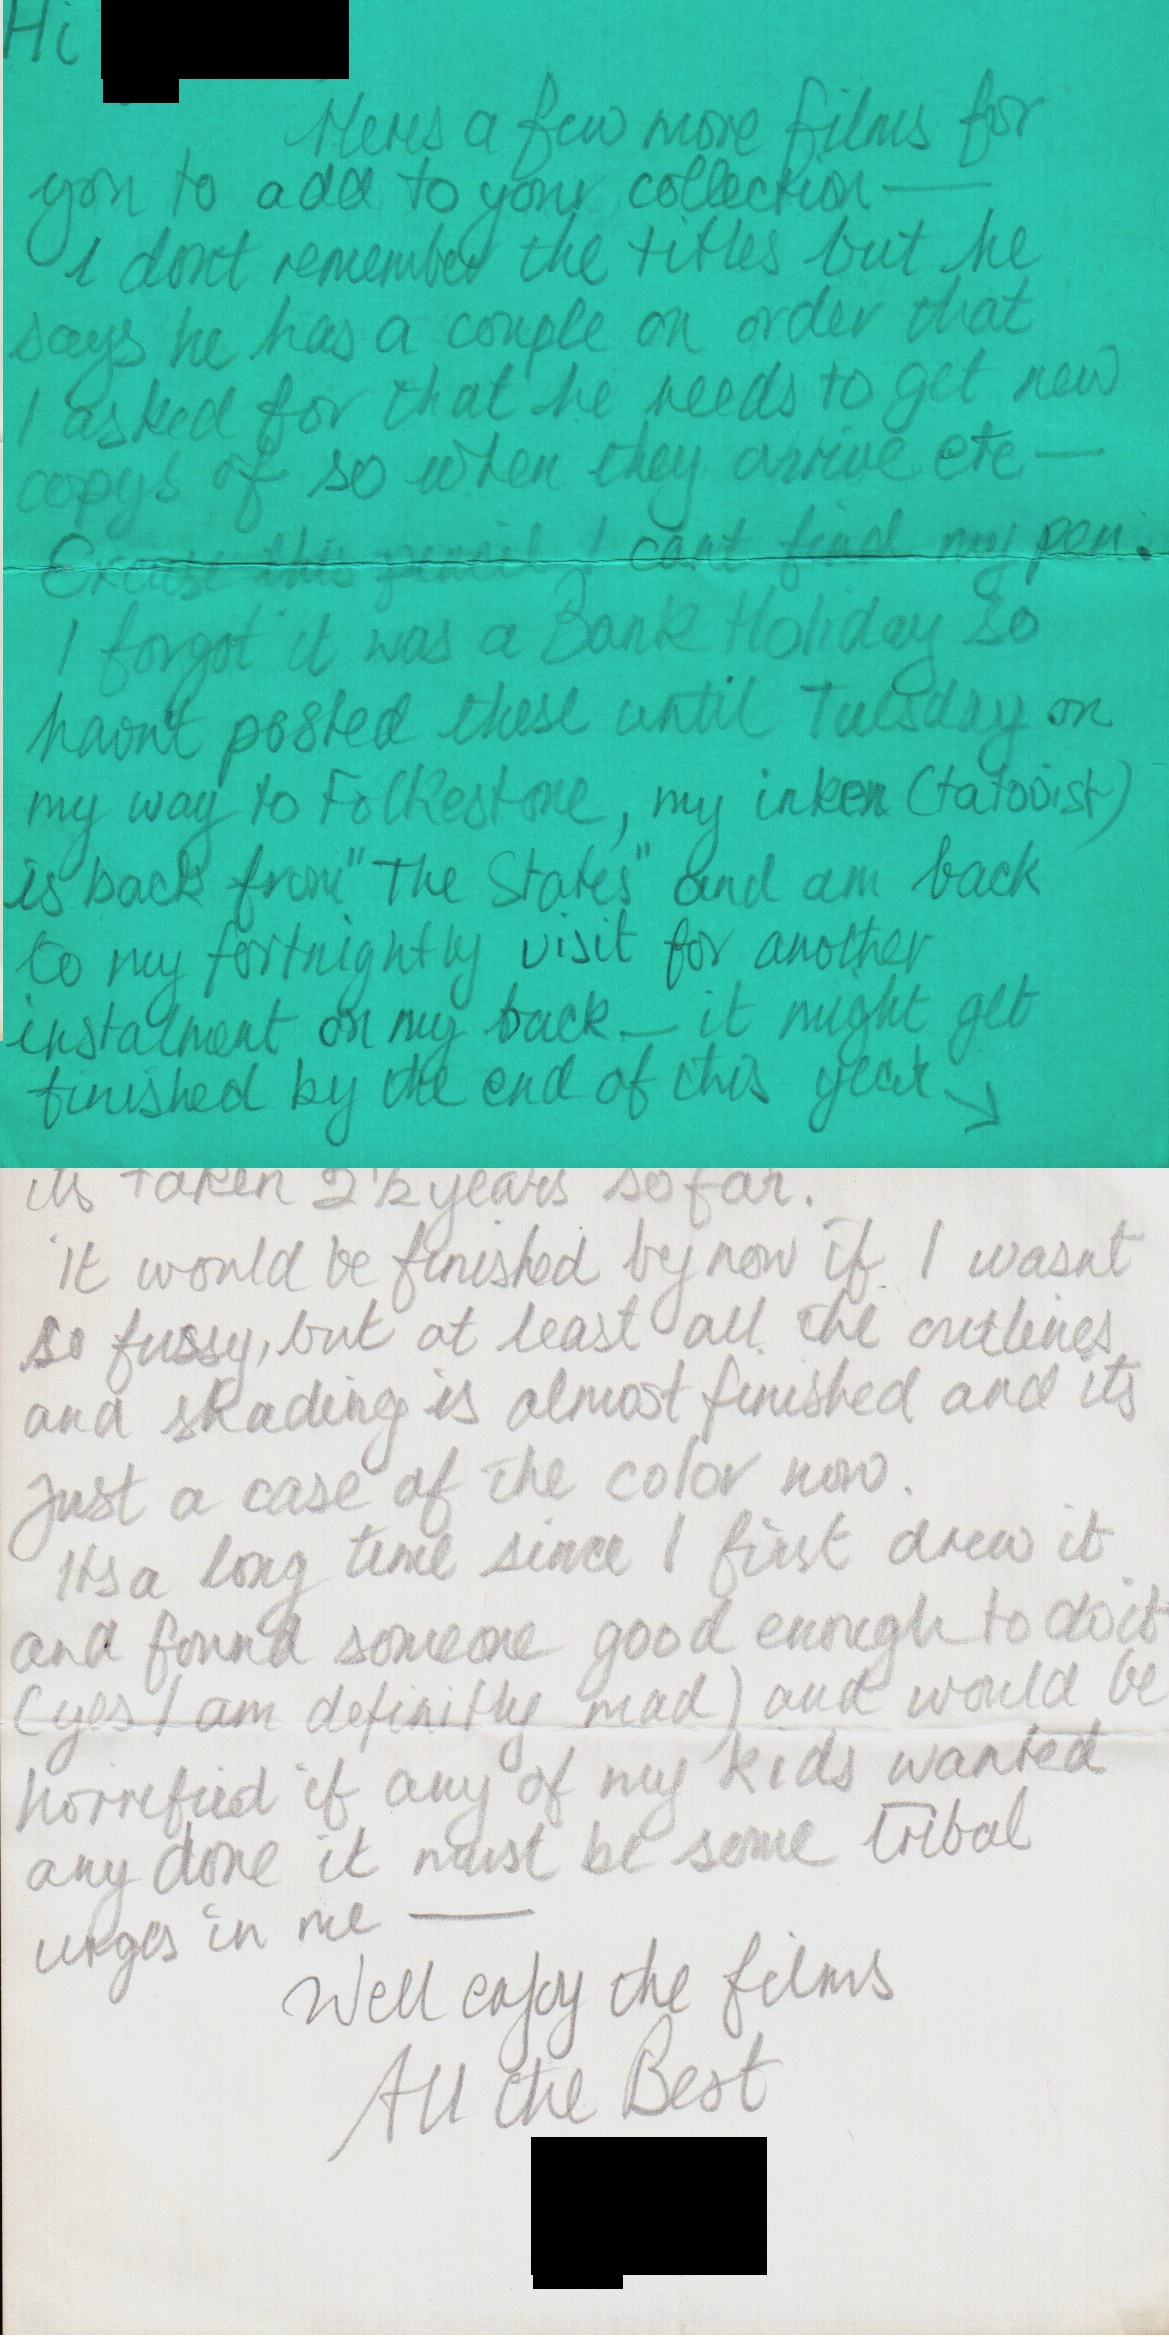 Hi
Heres a few more films for
you to add to your collection —
I dont remember the titles but he
says he has a couple on order that
I asked for that he needs to get new
copys of so when they arrive etc —
Excuse this pencil I cant find my pen.
I forgot it was a Bank Holiday so
havn't posted these until Tuesday on
my way to Folkestone, my inker (tatooist)
is back from "The States" and am back
to my fortnightly visit for another
instalment on my back — it might get
finished by the end of this year →
its taken 2½ years so far.
It would be finished by now if I wasnt
so fussy, but at least all the outlines
and shading is almost finished and its
just a case of the color now.
Its a long time since I first drew it
and found someone good enough to do it
(yes I am definitly mad) and would be
horrefied if any of my kids wanted
any done it must be some tribal
urges in me —
Well enjoy the films
All the Best